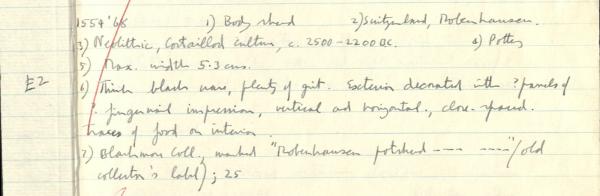 1554'68 1) Body sherd 2) Switzerland, Robenhausen.
3) Neolithic, Cortaillod culture, c. 2500-2200 BC. 4) Pottery
5) Max. width 5.3 cms.
E2
6) Thick black ware, plenty of grit. Exterior decorated with ? panels of
? fingernail impression, vertical and horizontal, close-spaced.
Traces of food on interior.
7) Blackmore Coll., marked "Robenhausen potsherd ---- ----" (old
collector's label); 25